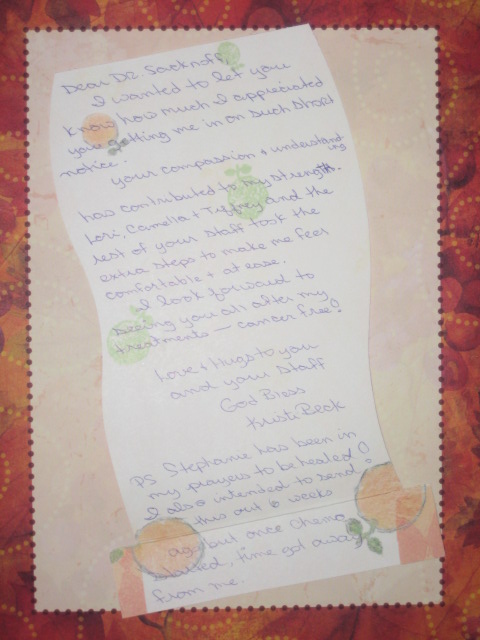 Dear Dr. Sacknoff,
I wanted to let you
know how much I appreciated
you getting me in on such short
notice.
your compassion + understanding
has contributed to my strength.
Lori, Camella + and the
rest of your staff took the
extra steps to make me feel
comfortable + at ease.
I look forward to
seeing you all after my
treatments — cancer free!
Love + Hugs to you
and your Staff
God Bless
Kristi Beck
PS Stephanie has been in
my prayers to be healed!
I also intended to send
this out 6 weeks
ago, but once chemo
started, time got away
from me.